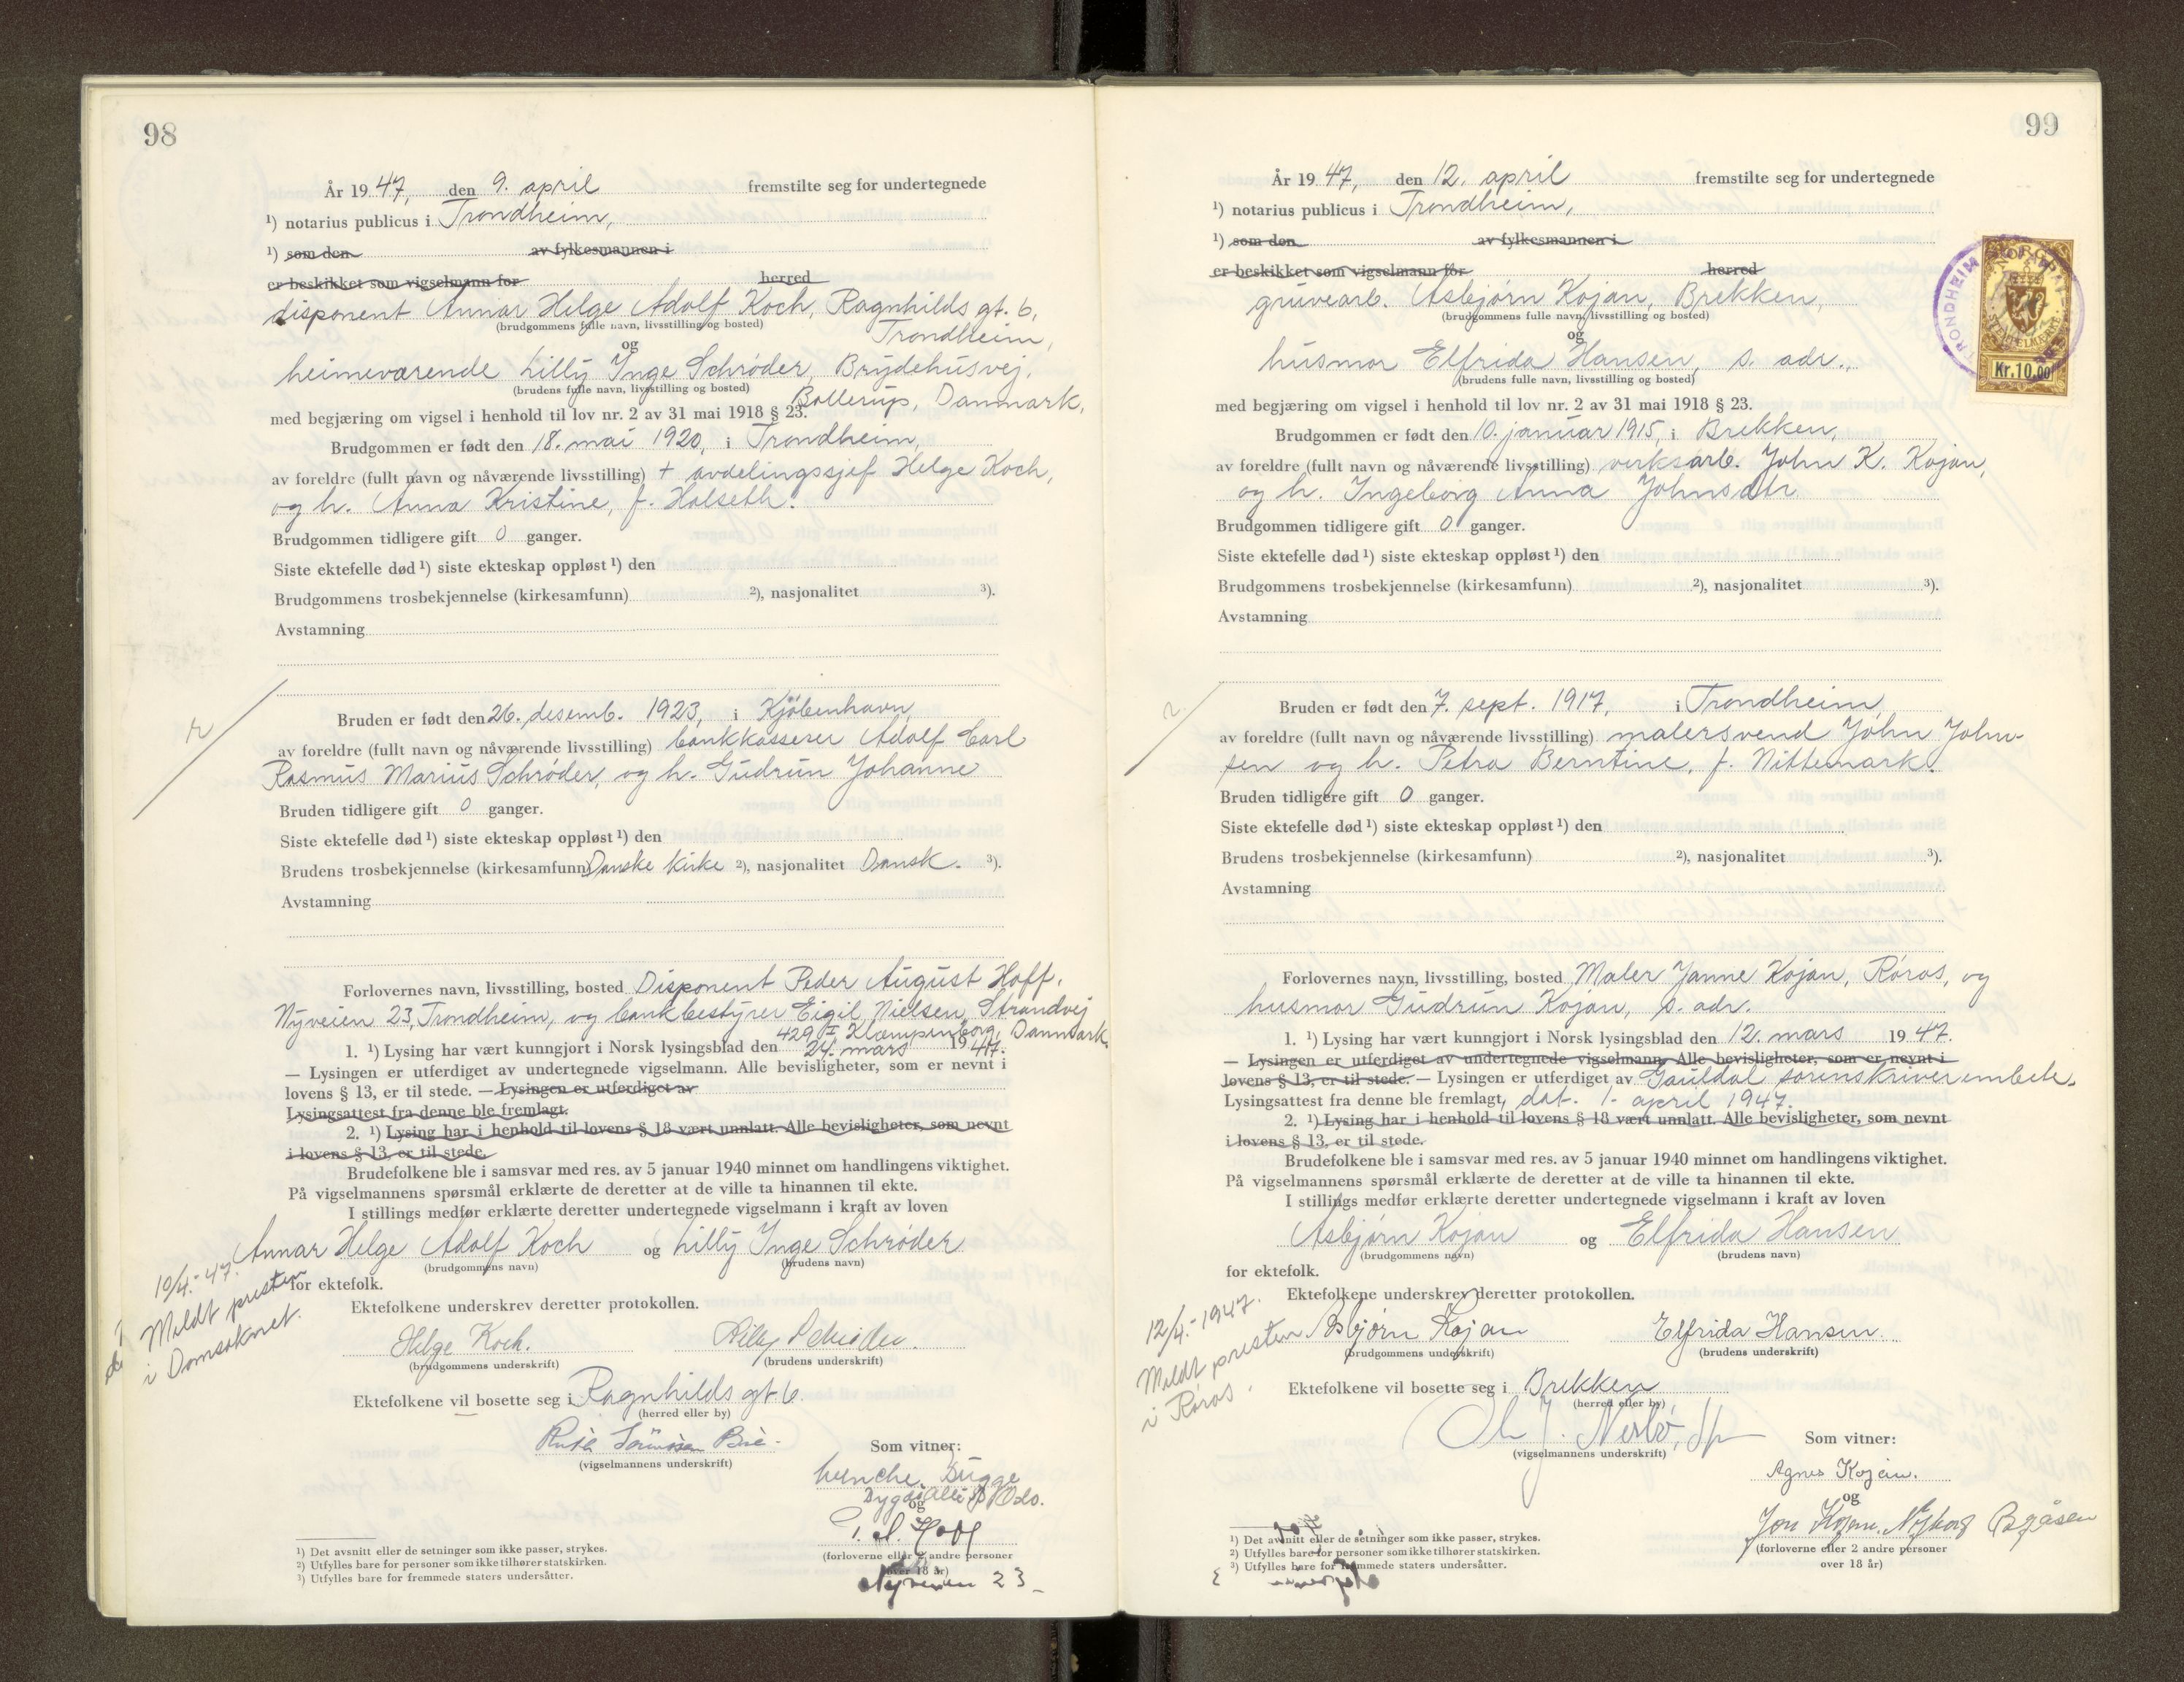 98
År 19 47, den 9. april fremstilte seg for undertegnede
¹) notarius publicus i Trondheim,
¹) som den av fylkesmannen i
er beskikket som vigselmann for herred
disponent Annar Helge Adolf Koch, Ragnhilds gt. 6,
(brudgommens fulle navn, livsstilling og bosted) Trondheim,
og
heimeværende Lilly Inge Schrøder, Brydehusvej,
(brudens fulle navn, livsstilling og bosted) Ballerup, Danmark,
med begjæring om vigsel i henhold til lov nr. 2 av 31 mai 1918 § 23.
Brudgommen er født den 18. mai 1920, i Trondheim,
av foreldre (fullt navn og nåværende livsstilling) + avdelingssjef Helge Koch,
og h. Anna Kristine, f. Holseth.
Brudgommen tidligere gift 0 ganger.
Siste ektefelle død ¹) siste ekteskap oppløst ¹) den
Brudgommens trosbekjennelse (kirkesamfunn) ²), nasjonalitet ³).
Avstamning
Bruden er født den 26. desemb. 1923, i Kjöbenhavn,
av foreldre (fullt navn og nåværende livsstilling) bankkasserer Adolf Carl
Rasmus Marius Schrøder, og h. Gudrun Johanne
Bruden tidligere gift 0 ganger.
Siste ektefelle død ¹) siste ekteskap oppløst ¹) den
Brudens trosbekjennelse (kirkesamfunn) Danske kirke ²), nasjonalitet Dansk. ³).
Avstamning
Forlovernes navn, livsstilling, bosted Disponent Peder August Hoff,
Nyveien 23, Trondheim, og bankbestyrer Eigil Nielsen, Strandvej
429 I Klampenborg, Danmark.
1. ¹) Lysing har vært kunngjort i Norsk lysingsblad den 24. mars 19 47.
— Lysingen er utferdiget av undertegnede vigselmann. Alle bevisligheter, som er nevnt i
lovens § 13, er til stede. — Lysingen er utferdiget av
Lysingsattest fra denne ble fremlagt.
2. ¹) Lysing har i henhold til lovens § 18 vært unnlatt. Alle bevisligheter, som nevnt
i lovens § 13, er til stede.
Brudefolkene ble i samsvar med res. av 5 januar 1940 minnet om handlingens viktighet.
På vigselmannens spørsmål erklærte de deretter at de ville ta hinannen til ekte.
I stillings medfør erklærte deretter undertegnede vigselmann i kraft av loven
Annar Helge Adolf Koch og Lilly Inge Schrøder
(brudgommens navn) (brudens navn)
for ektefolk.
10/4.-47.
Meldt presten
i Domsoknet.
Ektefolkene underskrev deretter protokollen.
Helge Koch. Lilly Schrøder.
(brudgommens underskrift) (brudens underskrift)
Ektefolkene vil bosette seg i Ragnhilds gt. 6.
(herred eller by)
(vigselmannens underskrift)
Som vitner:
Wenche Bugge
og
P. A. Hoff
(forloverne eller 2 andre personer
over 18 år)
Nyveien 23
¹) Det avsnitt eller de setninger som ikke passer, strykes.
²) Utfylles bare for personer som ikke tilhører statskirken.
³) Utfylles bare for fremmede staters undersåtter.
99
År 19 47, den 12. april fremstilte seg for undertegnede
¹) notarius publicus i Trondheim,
¹) som den av fylkesmannen i
er beskikket som vigselmann for herred
gruvearb. Asbjørn Kojan, Brekken,
(brudgommens fulle navn, livsstilling og bosted)
og
husmor Elfrida Hansen, s. adr.,
(brudens fulle navn, livsstilling og bosted)
TRONDHEIM
NORGE
STEMPELMERKE
Kr. 10,00
med begjæring om vigsel i henhold til lov nr. 2 av 31 mai 1918 § 23.
Brudgommen er født den 10. januar 1915, i Brekken,
av foreldre (fullt navn og nåværende livsstilling) verksarb. John K. Kojan,
og h. Ingeborg Anna Johnsdtr.
Brudgommen tidligere gift 0 ganger.
Siste ektefelle død ¹) siste ekteskap oppløst ¹) den
Brudgommens trosbekjennelse (kirkesamfunn) ²), nasjonalitet ³).
Avstamning
Bruden er født den 7. sept. 1917, i Trondheim,
av foreldre (fullt navn og nåværende livsstilling) malersvend John John-
sen og h. Petra Berntine, f. Nittemark.
Bruden tidligere gift 0 ganger.
Siste ektefelle død ¹) siste ekteskap oppløst ¹) den
Brudens trosbekjennelse (kirkesamfunn) ²), nasjonalitet ³).
Avstamning
Forlovernes navn, livsstilling, bosted Maler Janne Kojan, Røros, og
husmor Gudrun Kojan, s. adr.
1. ¹) Lysing har vært kunngjort i Norsk lysingsblad den 12. mars 19 47.
— Lysingen er utferdiget av undertegnede vigselmann. Alle bevisligheter, som er nevnt i
lovens § 13, er til stede. — Lysingen er utferdiget av Gauldal sorenskriverembete.
Lysingsattest fra denne ble fremlagt, dat. 1. april 1947.
2. ¹) Lysing har i henhold til lovens § 18 vært unnlatt. Alle bevisligheter, som nevnt
i lovens § 13, er til stede.
Brudefolkene ble i samsvar med res. av 5 januar 1940 minnet om handlingens viktighet.
På vigselmannens spørsmål erklærte de deretter at de ville ta hinannen til ekte.
I stillings medfør erklærte deretter undertegnede vigselmann i kraft av loven
Asbjørn Kojan og Elfrida Hansen
(brudgommens navn) (brudens navn)
for ektefolk.
12/4.-1947.
Meldt presten
i Røros.
Ektefolkene underskrev deretter protokollen.
Asbjørn Kojan Elfrida Hansen.
(brudgommens underskrift) (brudens underskrift)
Ektefolkene vil bosette seg i Brekken
(herred eller by)
(vigselmannens underskrift)
Som vitner:
Agnes Kojan.
og
Jon Kojan. Nyborg Byåsen
(forloverne eller 2 andre personer
over 18 år)
¹) Det avsnitt eller de setninger som ikke passer, strykes.
²) Utfylles bare for personer som ikke tilhører statskirken.
³) Utfylles bare for fremmede staters undersåtter.